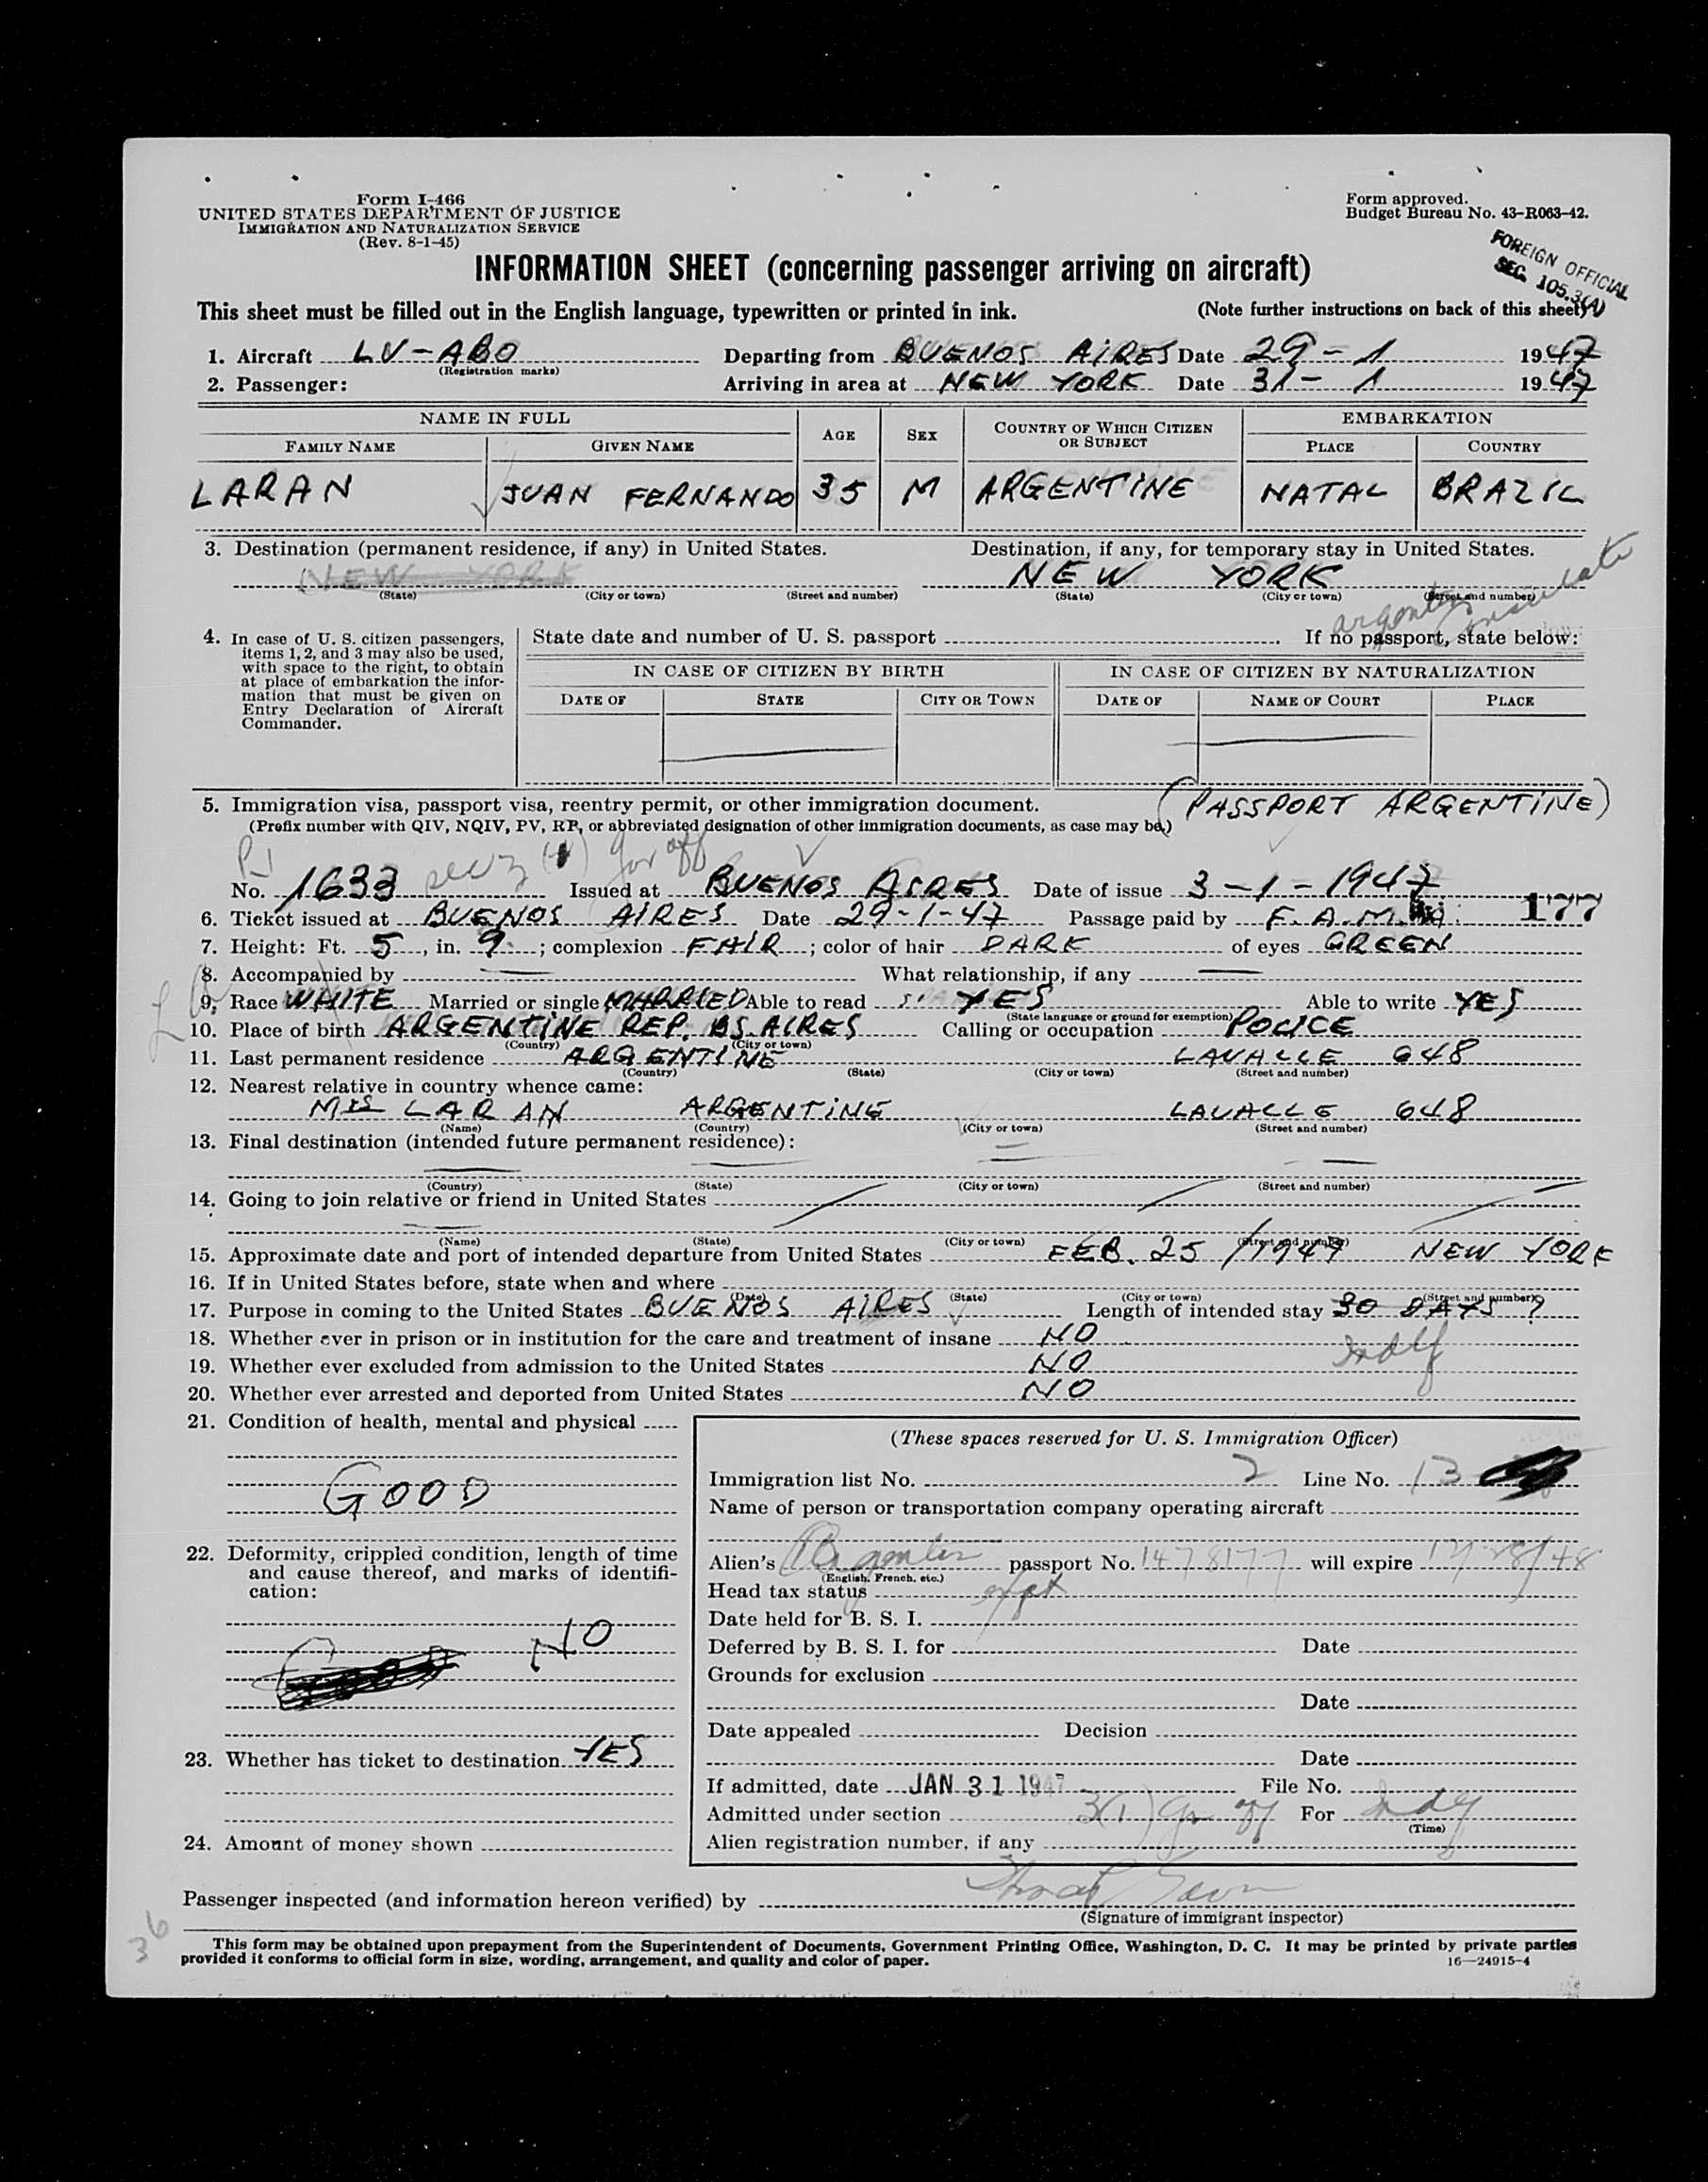 Form I-466
UNITED STATES DEPARTMENT OF JUSTICE
IMMIGRATION AND NATURALIZATION SERVICE
(Rev. 8-1-45)
Form approved.
Budget Bureau No. 43-R063-42.
FOREIGN OFFICIAL
SEC. 105.3(A)
INFORMATION SHEET (concerning passenger arriving on aircraft)
This sheet must be filled out in the English language, typewritten or printed in ink. (Note further instructions on back of this sheet)
1. Aircraft LV-ABO Departing from BUENOS AIRES Date 29-1 1947
(Registration marks)
2. Passenger: Arriving in area at NEW YORK Date 31-1 1947
NAME IN FULL AGE SEX COUNTRY OF WHICH CITIZEN OR SUBJECT EMBARKATION
FAMILY NAME GIVEN NAME PLACE COUNTRY
LARAN JUAN FERNANDO 35 M ARGENTINE NATAL BRAZIL
3. Destination (permanent residence, if any) in United States. Destination, if any, for temporary stay in United States.
NEW YORK NEW YORK
(State) (City or town) (Street and number) (State) (City or town) (Street and number)
4. In case of U. S. citizen passengers, items 1, 2, and 3 may also be used, with space to the right, to obtain at place of embarkation the information that must be given on Entry Declaration of Aircraft Commander.
State date and number of U. S. passport If no passport, state below:
IN CASE OF CITIZEN BY BIRTH IN CASE OF CITIZEN BY NATURALIZATION
DATE OF STATE CITY OR TOWN DATE OF NAME OF COURT PLACE
5. Immigration visa, passport visa, reentry permit, or other immigration document. (PASSPORT ARGENTINE)
(Prefix number with QIV, NQIV, PV, RP, or abbreviated designation of other immigration documents, as case may be.)
No. 1633 Issued at BUENOS AIRES Date of issue 3-1-1947
6. Ticket issued at BUENOS AIRES Date 29-1-47 Passage paid by F.A.M.A. 177
7. Height: Ft. 5, in. 9; complexion FAIR; color of hair DARK of eyes GREEN
8. Accompanied by What relationship, if any
9. Race WHITE Married or single MARRIED Able to read YES Able to write YES
(State language or ground for exemption)
10. Place of birth ARGENTINE REP. BS. AIRES Calling or occupation POLICE
(Country) (City or town)
11. Last permanent residence ARGENTINE LAVALLE 648
(Country) (State) (City or town) (Street and number)
12. Nearest relative in country whence came:
Mrs LARAN ARGENTINE LAVALLE 648
(Name) (Country) (City or town) (Street and number)
13. Final destination (intended future permanent residence):
(Country) (State) (City or town) (Street and number)
14. Going to join relative or friend in United States
(Name) (State) (City or town) (Street and number)
15. Approximate date and port of intended departure from United States FEB. 25 /1947 NEW YORK
16. If in United States before, state when and where
(Date) (State) (City or town) (Street and number)
17. Purpose in coming to the United States BUENOS AIRES Length of intended stay 30 DAYS ?
18. Whether ever in prison or in institution for the care and treatment of insane NO
19. Whether ever excluded from admission to the United States NO
20. Whether ever arrested and deported from United States NO
21. Condition of health, mental and physical
GOOD
22. Deformity, crippled condition, length of time and cause thereof, and marks of identification:
NO
23. Whether has ticket to destination YES
24. Amount of money shown
(These spaces reserved for U. S. Immigration Officer)
Immigration list No. 2 Line No. 13
Name of person or transportation company operating aircraft
Alien's passport No. 1478177 will expire
(English, French, etc.)
Head tax status
Date held for B. S. I.
Deferred by B. S. I. for Date
Grounds for exclusion
Date
Date appealed Decision
Date
If admitted, date JAN 31 1947 File No.
Admitted under section 3(1) For
(Time)
Alien registration number, if any
Passenger inspected (and information hereon verified) by
(Signature of immigrant inspector)
36
This form may be obtained upon prepayment from the Superintendent of Documents, Government Printing Office, Washington, D. C. It may be printed by private parties
provided it conforms to official form in size, wording, arrangement, and quality and color of paper. 16—24915-4